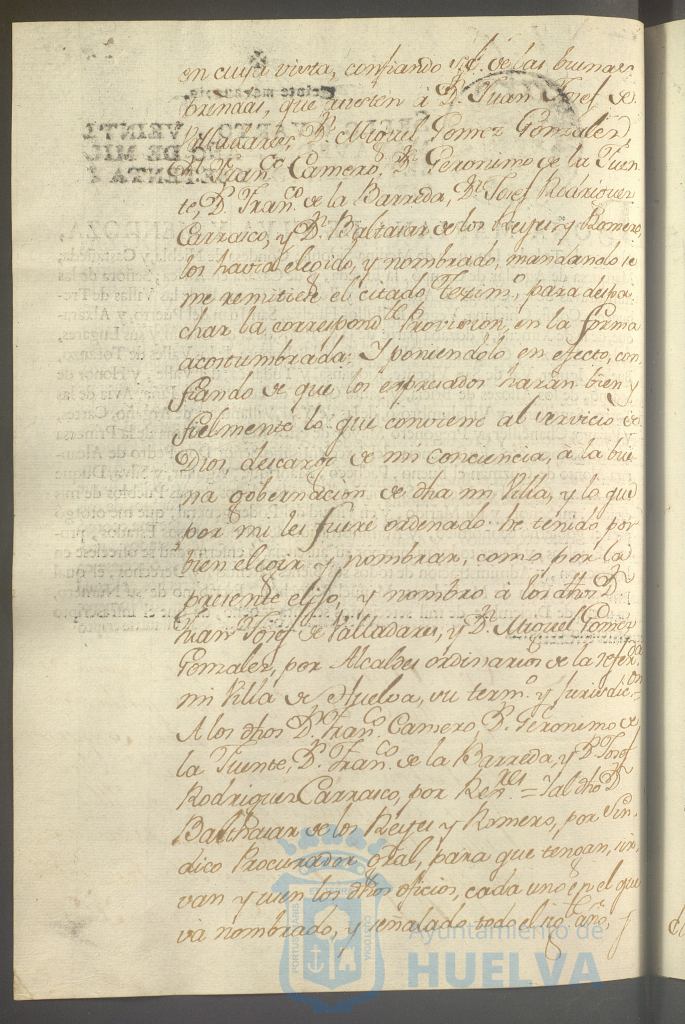 en cuya vista, confiando de las buenas
prendas, que asisten à Dn. Juan Josef de
Valladares, Dn. Miguel Gomez Gonzalez,
Dn. Franco. Camero, Dn. Geronimo de la Fuen
te, Dn. Franco. de la Barreda, Dn. Josef Rodriguez
Carrasco, y Dn. Baltasar de los Reyes y Romero,
los havia elegido, y nombrado, mandando se
me remitiese el citado Teximo. para despa
char la correspondte. Provision, en la forma
acostumbrada: Y poniendolo en efecto, con
fiando de que los expresados haràn bien y
fielmente lo que conviene al servicio de
Dios, descargo de mi conciencia, à la bue
na gobernacion de dha mi Villa, y lo que
por mi les fuere ordenado: he tenido por
bien elegir y nombrar, como por la
presente elijo, y nombro à los dhos Dn
Juan Josef de Valladares, y Dn. Miguel Gomez
Gonzalez, por Alcaldes ordinarios de la referda
mi Villa de Huelva, su termo. y Jurisdicon=
A los dhos Dn. Franco. Camero, Dn. Geronimo de
la Fuente, Dn. Franco. de la Barreda, y Dn Josef
Rodriguez Carrasco, por Rexres = Y al dho Dn
Balthasar de los Reyes y Romero, por Sin
dico Procurador gral, para que tengan, sir
van y usen los dhos oficios, cada uno en el que
và nombrado, y señalado todo el
Ayuntamiento de
HUELVA